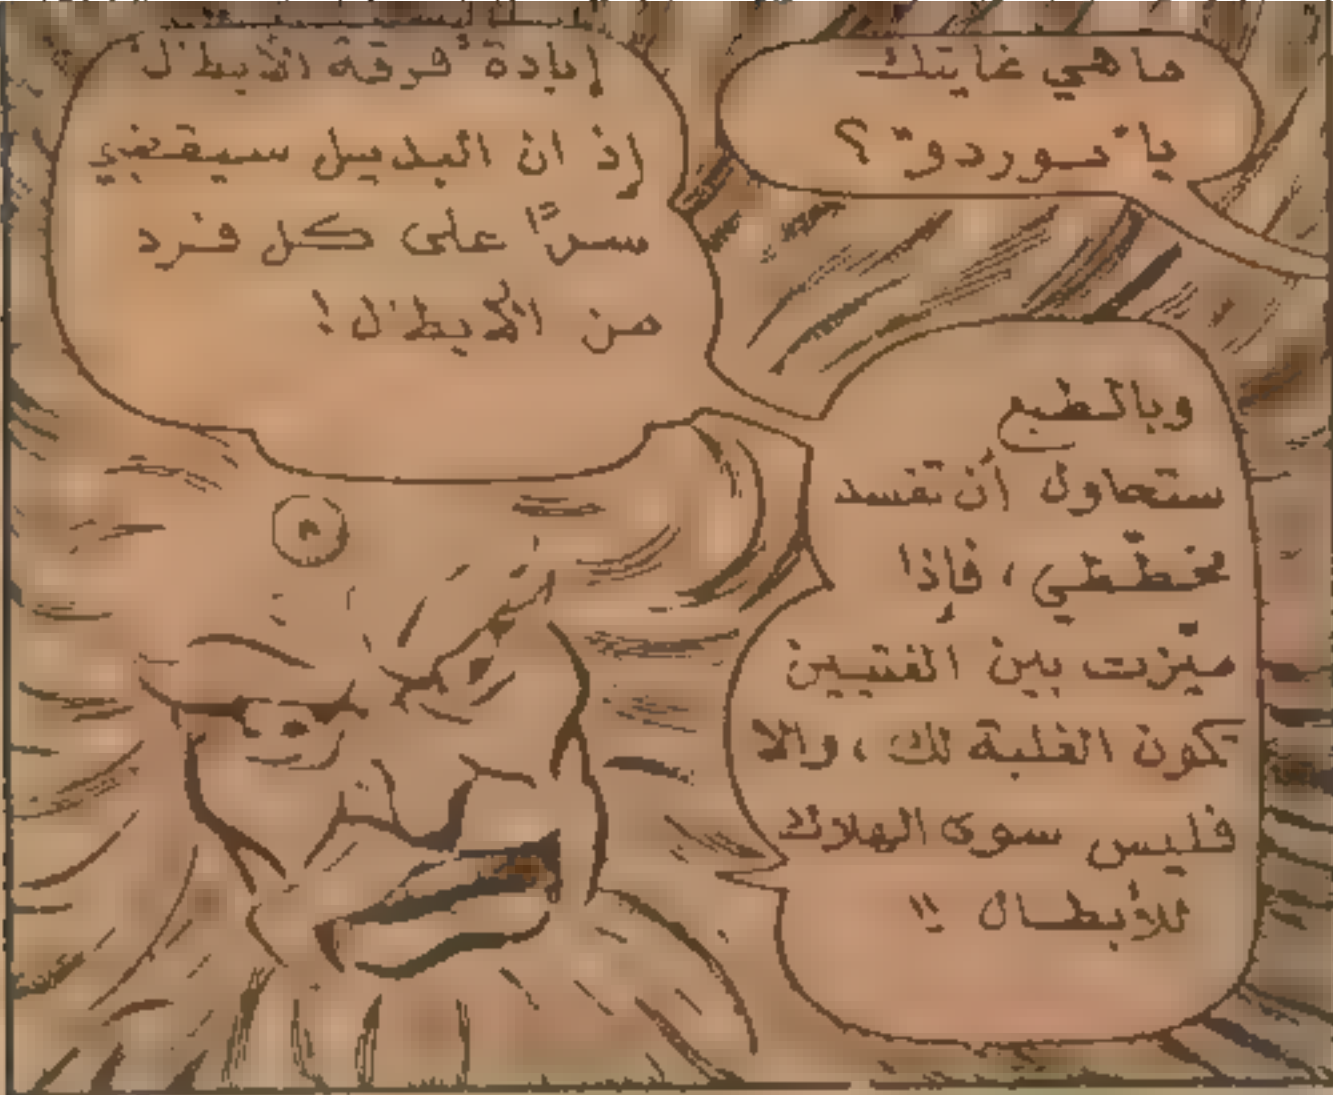 ما هي غايتك
يا "نوردو" ؟
إبادة "فرقة الأبطال"
إذ ان البديل سيقضي
سرًّا على كل فرد
من الأبطال !
وبالطبع
ستحاول أن تفسد
مخططي ، فإذا
ميّزت بين الفئتين
تكون الغلبة لك ، والا
فليس سوى الهلاك
للأبطال !!